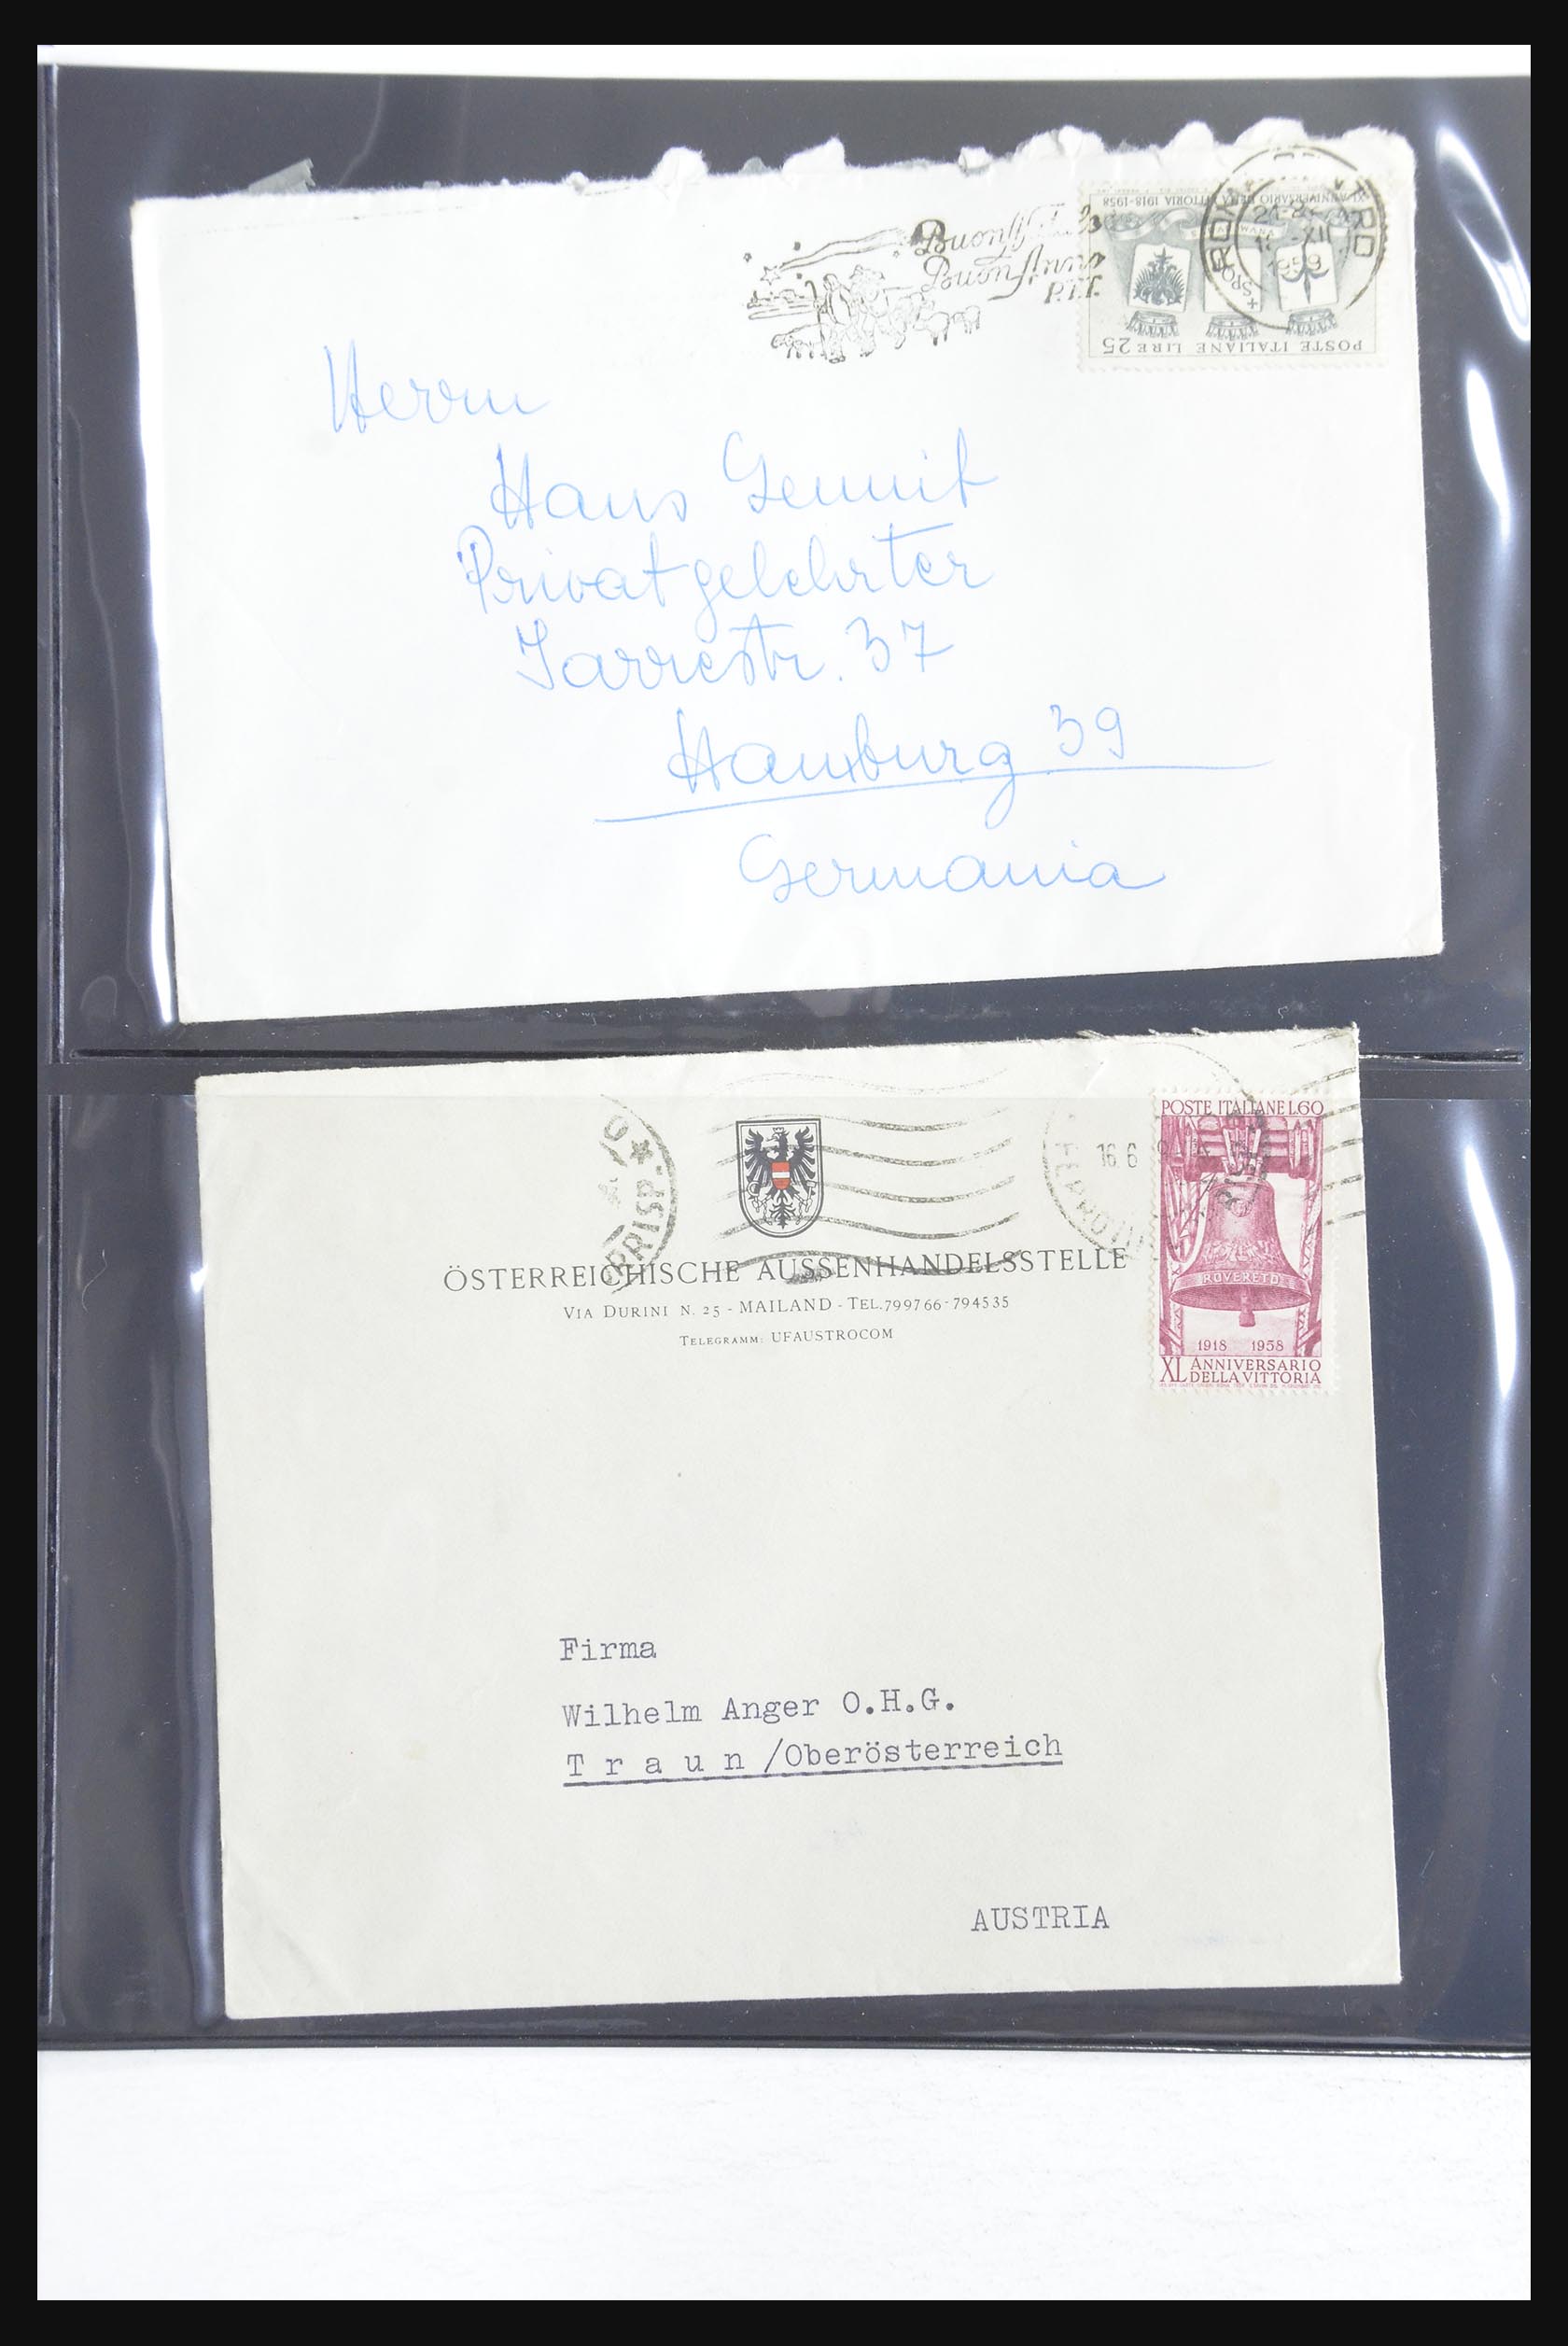 Buon Anno
P.T.T.
ROMA CENTRO
XII
1959
XL ANNIVERSARIO DELLA VITTORIA 1918-1958
POSTE ITALIANE LIRE 25
Herrn
Hans
Privatgelehrter
Jarrestr. 37
Hamburg 39
Germania
POSTE ITALIANE L.60
16 6
ROVERETO
1918 1958
XL ANNIVERSARIO
DELLA VITTORIA
ÖSTERREICHISCHE AUSSENHANDELSSTELLE
VIA DURINI N. 25 - MAILAND - TEL. 799766-794535
TELEGRAMM: UFAUSTROCOM
Firma
Wilhelm Anger O.H.G.
T r a u n /Oberösterreich
AUSTRIA